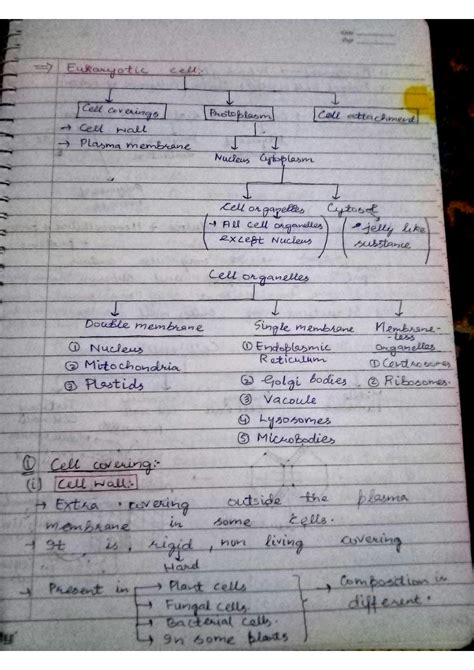 ⇒ Eukaryotic cell:-
Cell coverings Protoplasm Cell attachment
→ Cell wall
→ Plasma membrane
Nucleus Cytoplasm
Cell organelles Cytosol
(→ All cell organelles except Nucleus) (jelly like substance)
Cell organelles
Double membrane Single membrane Membrane-less organelles
① Nucleus ① Endoplasmic Reticulum ① Centrosomes
② Mitochondria ② Golgi bodies ② Ribosomes
③ Plastids ③ Vacoule
④ Lysosomes
⑤ Microbodies
① Cell covering:-
(i) Cell wall:-
→ Extra covering outside the plasma
membrane in some cells.
→ It is, rigid, non living covering
Hard
→ Present in → Plant cells → Composition is
→ Fungal cells. different.
→ Bacterial cells.
→ In some plants